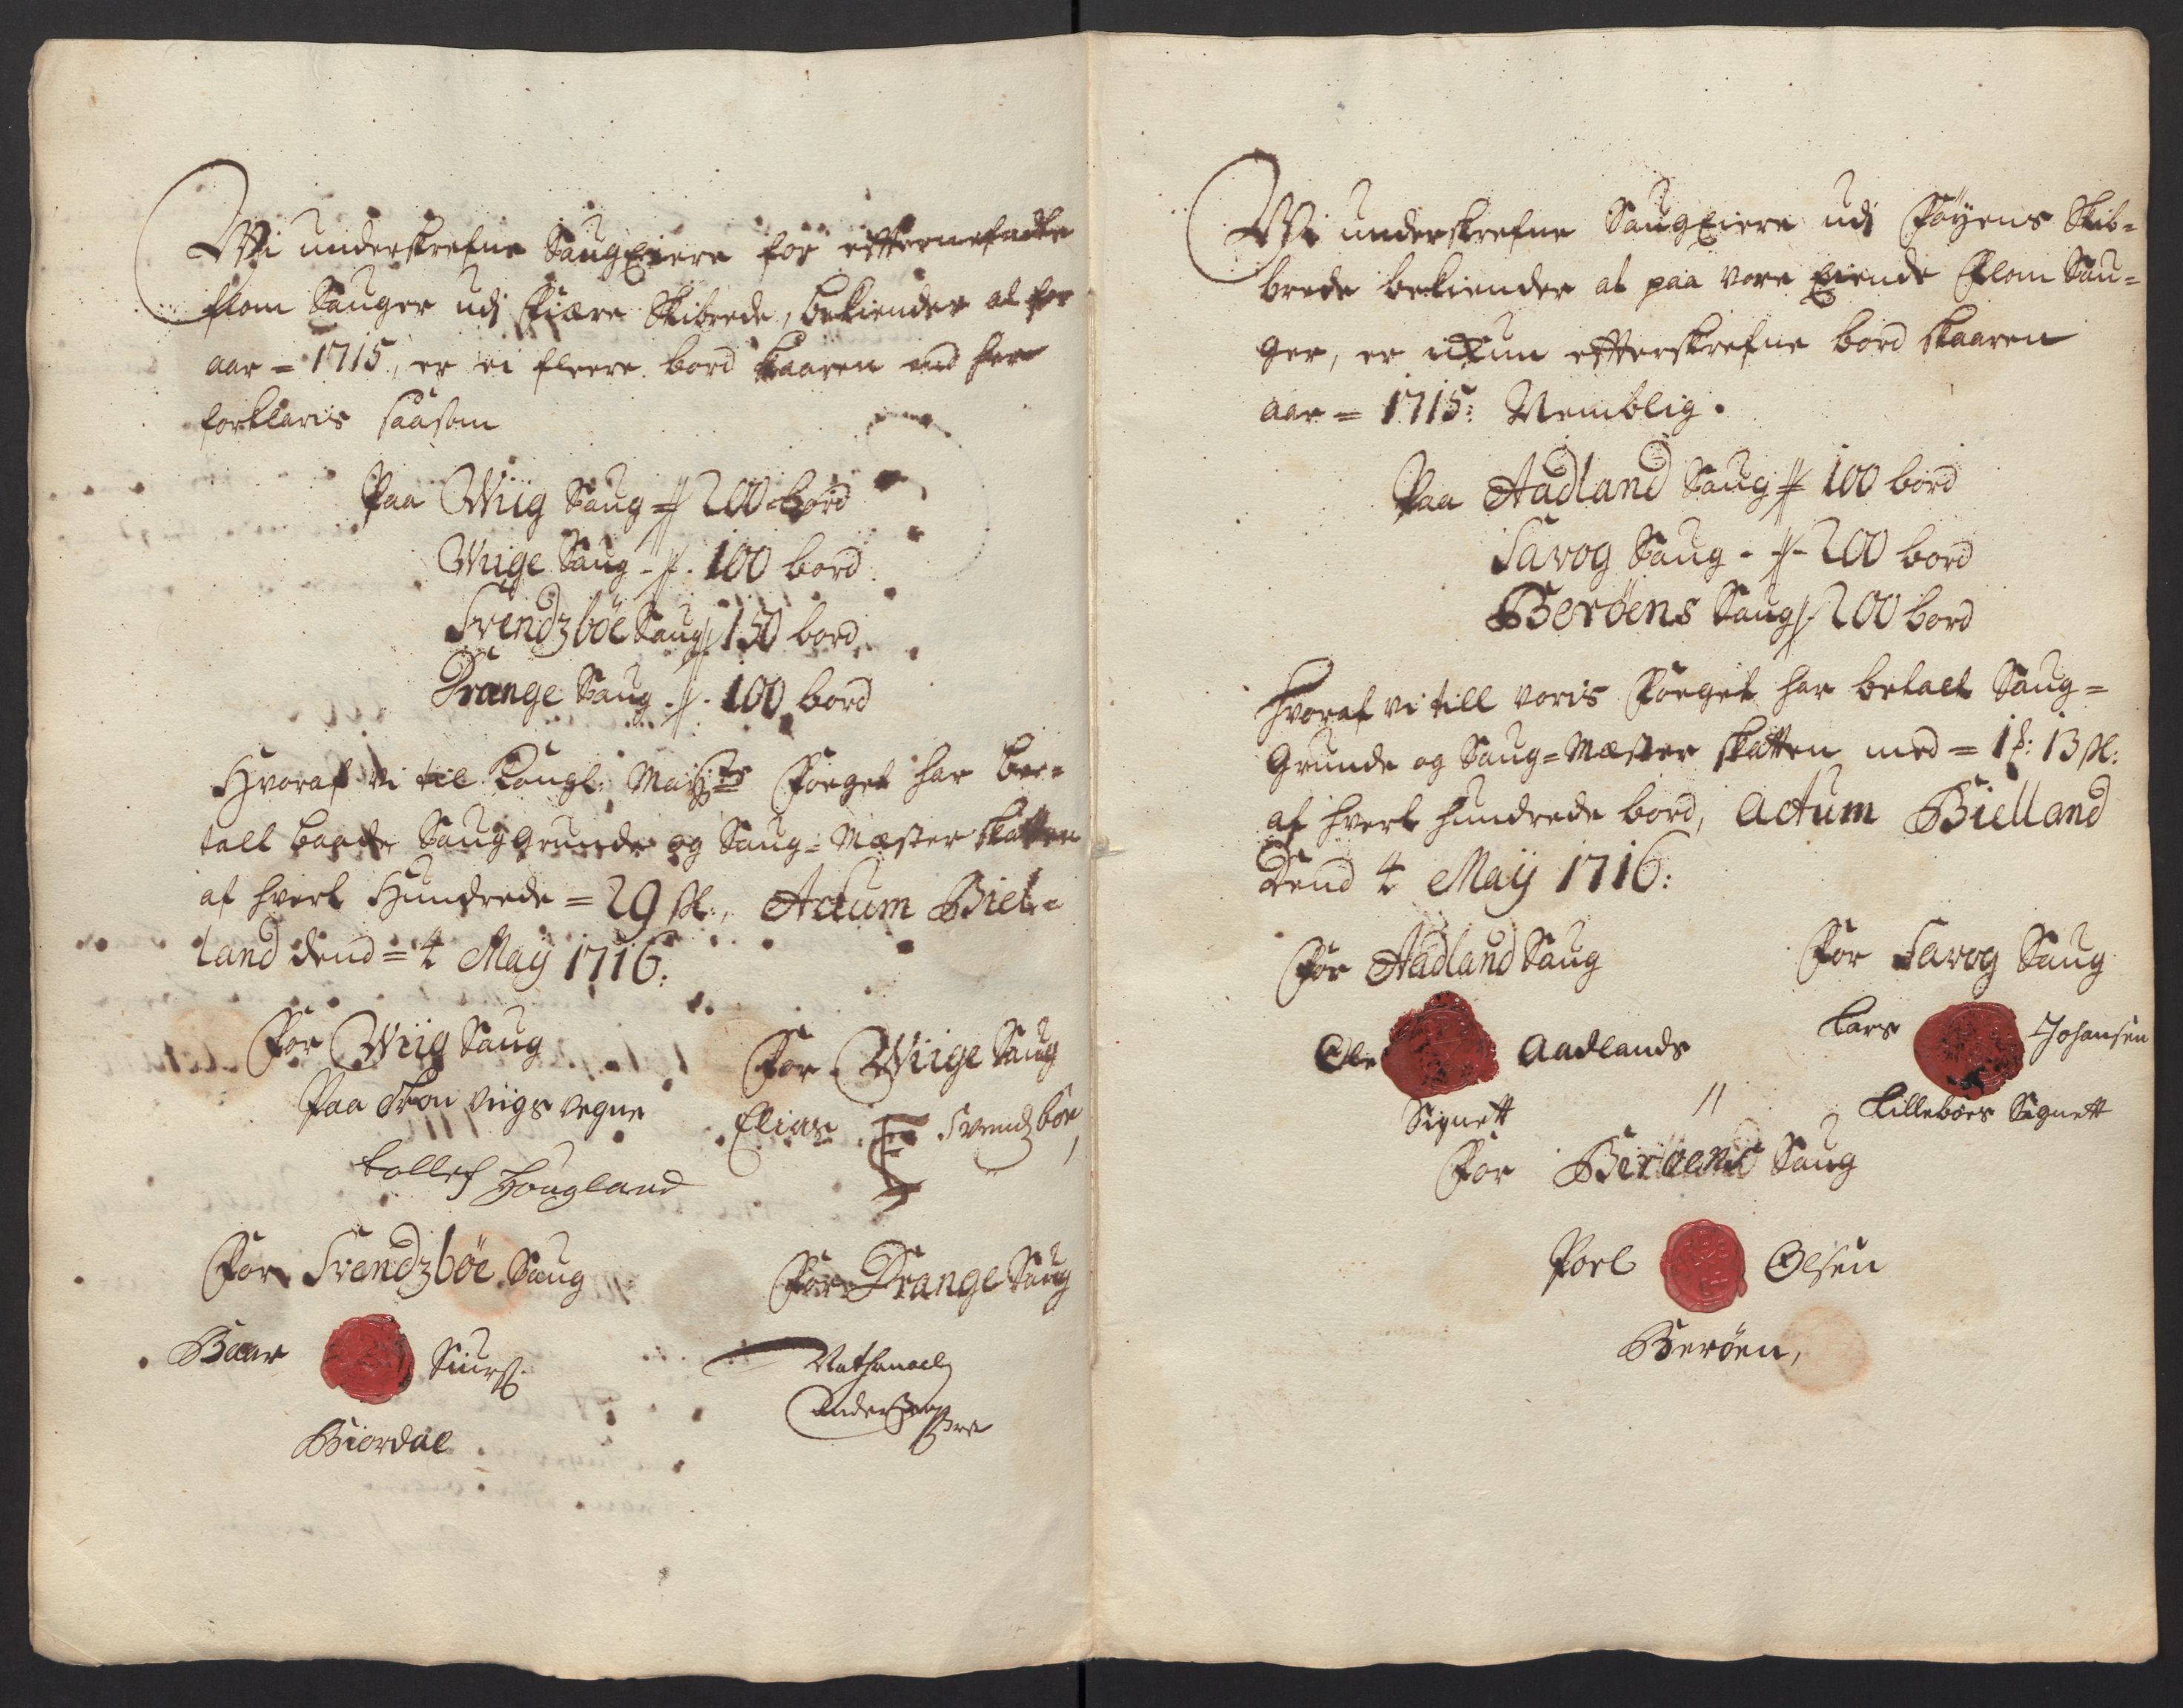 Wi underskrefne SaugEiere for efternefndte
flom Sauger udj Fiære Skibrede, bekiender at for
aar = 1715, er ei fleere bord skaaren end her
forklaris saasom
Paa Wiig Saug = 200 bord
Wiige Saug - 100 bord
Svendzböe Saug 150 bord
Drange Saug - 100 bord
Hvoraf vi til Kongl: Maÿtz Foeget har be=
talt baade Sauggrunde og Saug=Mæster skatten
af hvert Hundrede = 29 sk:, Actum Biel=
land dend = 4 Maÿ 1716:
For Wiig Saug
Paa viigs vegne
tollef Hougland
For Wiige Saug
Elias E Svendzböe
For Svendzböe Saug
Baar Siurs:
Biordal
For Drange Saug
Nathanaell
Anders
Wi underskrefne SaugEiere udj Föÿens Skib=
brede bekiender at paa vore Eiende Flom Sau=
ger, er ickun efterskrefne bord skaaren
aar = 1715: Nemblig.
Paa Aadland Saug 100 bord
Savog Saug - 200 bord
Beröens Saug 200 bord
Hvoraf vi till voris Foeget har betalt Saug=
Grunde og Saug=Mæster skatten med = 1 : 13 sk:
af hvert hundrede bord, Actum Bielland
Dend 4 Maÿ 1716:
For Aadland Saug
Ole Aadlands
Signett
For Savog Saug
Lars Johansen
Lilleböes Signett
For Beröens Saug
Poel Olsen
Beröen,